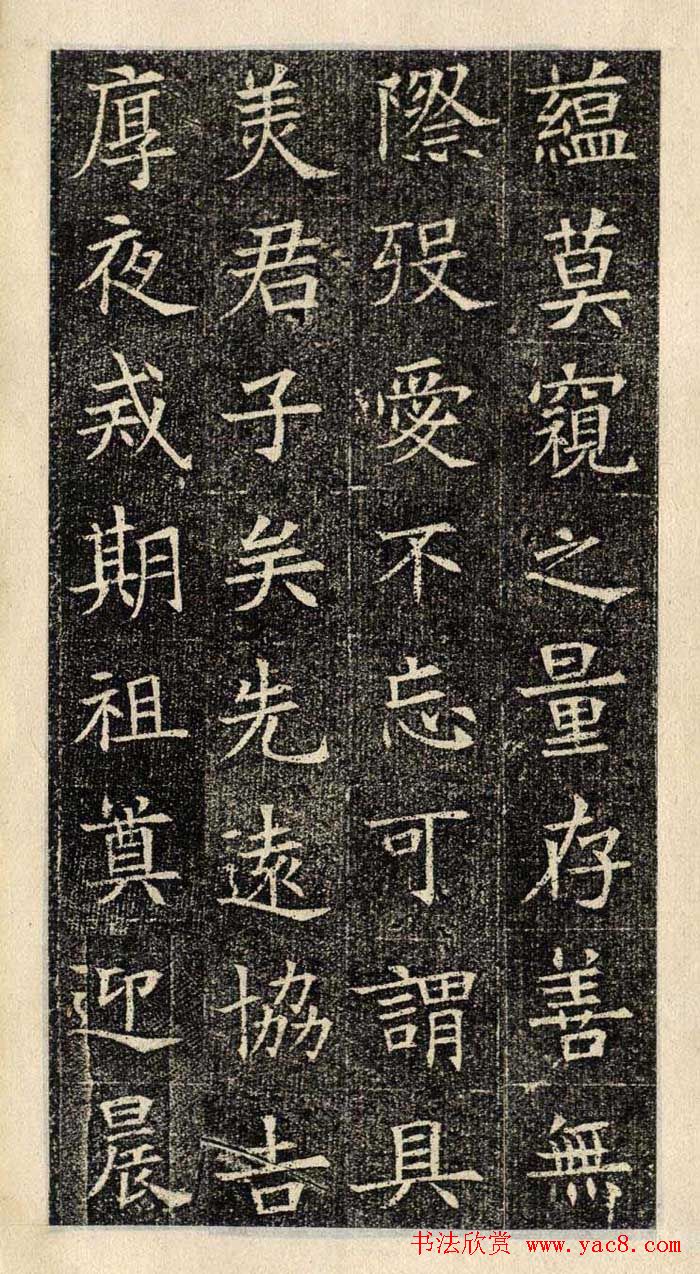 蘊莫窺之量存善無
際歿愛不忘可謂具
美君子矣先遠協吉
厚夜戒期祖奠迎晨
书法欣赏 www.yac8.com